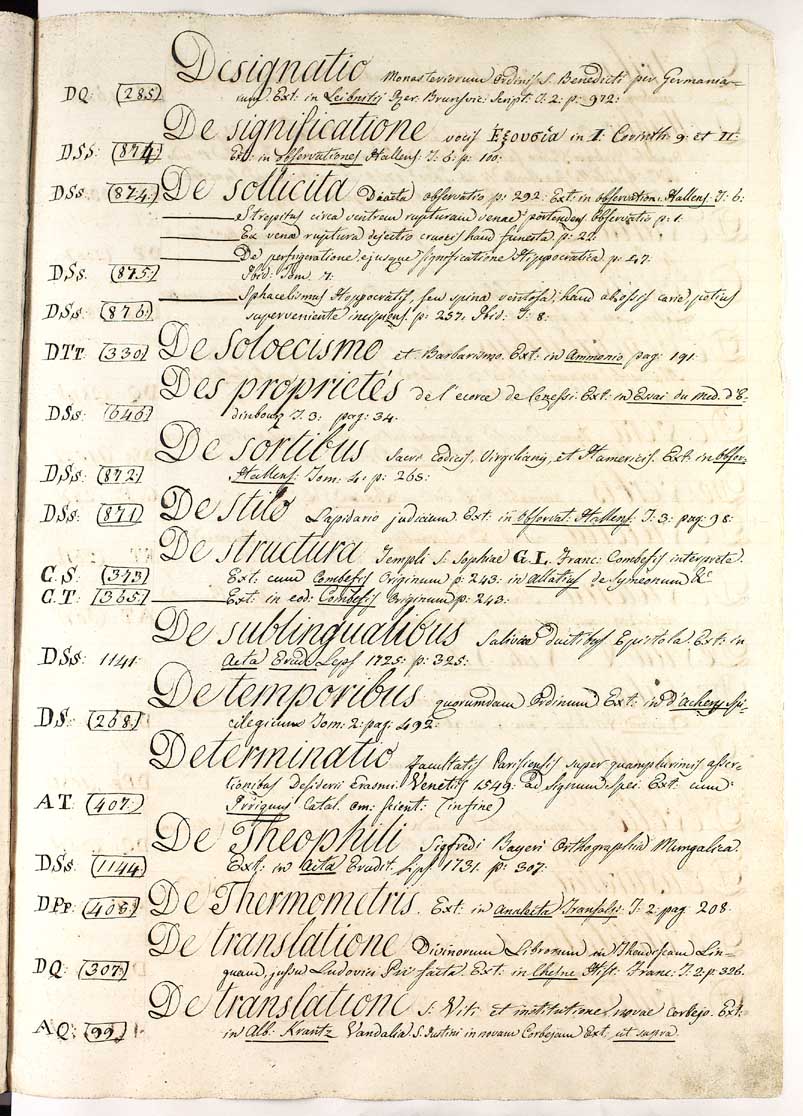 Designatio Monasteriorum Ordinis S. Benedicti per Germania-
DQ: (285) rum Ext: in Leibnitzij Rer: Brunsvic: Script: T: 2: p: 972:
De significatione vocis Ἐξουσία in I. Corinth: 9: et 11:
DSs: (874) Ext: in observationes Hallens: T: 6: p: 110:
DSs: (874) De sollicita Diaeta observatio p: 292: Ext: in observation: Hallens: T: 6:
Strepitus circa ventrem rupturam venae portendens Observatio p: 1:
Ex venae ruptura dejectio cruoris haud funesta p: 22:
De perfrigeratione, ejusque significatione Hippocratica p: 47:
DSs: (875) Ibid: Tom: 7:
Sphacelismus Hoppocratis, seu spina ventosa, haud ab ossis carie potius
DSs: (876) superveniente incipiens. p: 257: Ibid: T: 8:
DTt: (330) De soloecismo et Barbarismo. Ext: in Ammonio pag: 191:
Des proprietés de l'ecorce de Ext: in Essai du med. d'E-
DSs: (646) dinbourg T: 3: pag: 34:
De sortibus Sacro Codicis, Virgilianis, et Hamericis. Ext: in obser:
DSs: (872) Hallens: Tom: 4: p: 265:
DSs: (871) De stilo Lapidario judicium. Ext: in observat: Hallens: T: 3: pag: 98:
De structura Templi S: Sophiae G. L. Franc: Combefis interprete.
C.S: (343) Ext: cum Combefis Originum p: 243: in Allatius de Symeonum &c
C.T: (365) Ext: in eod: Combefis Originum p: 243:
De sublingualibus salivae ductibus Epistola Ext: in
DSs: 1141 Acta Erud: Leps: 1725: p: 325:
De temporibus quorumdam Ordinum Ext: in d'achery spi-
DS: (268) cilegium Tom: 2: pag: 492:
Determinatio facultatis Parisiensis super quamplurimis asser-
tionibus Desiderii Erasmi. Venetiis 1549: ad signum spei Ext: cum
AT: (407) Catal. om: scient: (in fine)
De Theophili Sigfredi Bayeri Orthographia Mungalica.
DSs: (1144) Ext: in Acta Erudit. Lips: 1731: p: 307:
DPp: (403) De Thermometris. Ext: in Analecta Transalp: T: 2: pag: 208:
De translatione Divinorum Librorum in Theudiscam Lin-
DQ: (307) guam, jussu Ludovici Pii facta. Ext: in Chesne Hist: Franc: T: 2: p: 326.
De translatione S: Viti et institutione novae Corbejo. Ext:
AQ: (99) in Alb: Krantz Vandalia. S. Justini in novam Corbejam Ext: ut supra